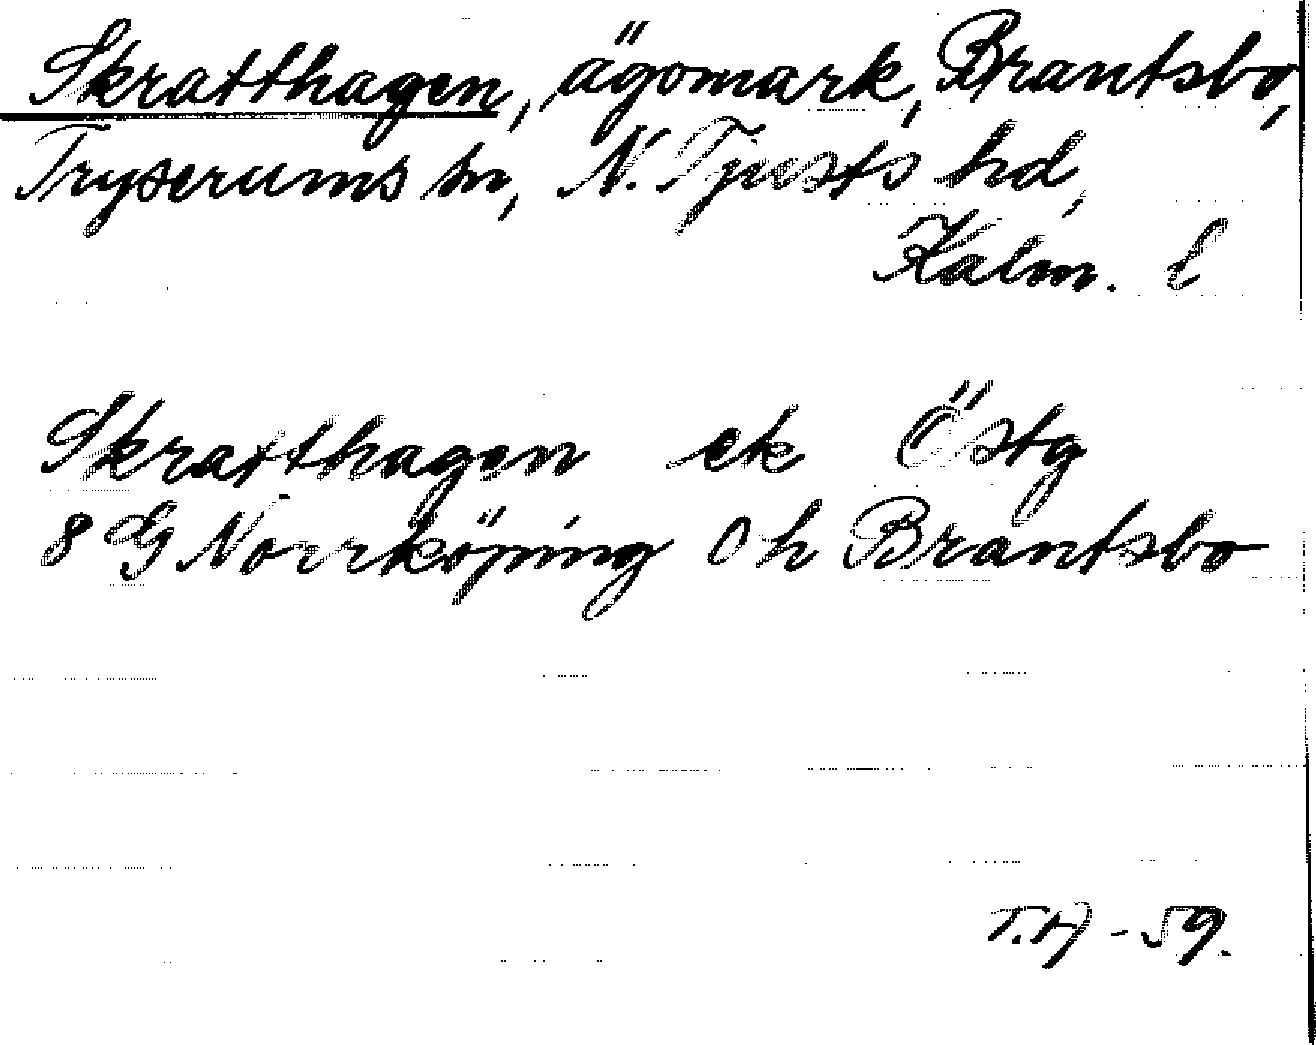 Skratthagen, ägomark, Brantsbo,
Tryserums sn, N. Tjusts hd,
Kalm. l
Skratthagen ek Östg
8 G Norrköping Öh Brantsbo
T.H -59.